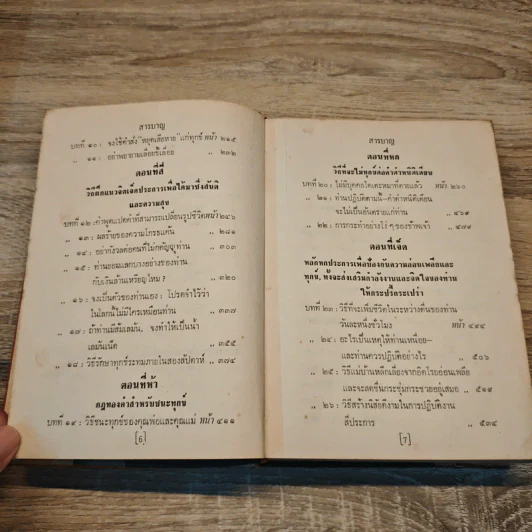 สารบาญ
บทที่ ๑๐ : จงใช้คำสั่ง "หยุดเสียหาย" แก่ทุกข์ หน้า ๒๑๕
,, ๑๑ : อย่าพยายามเลื่อยขี้เลื่อย ,, ๒๓๒
ตอนที่สี่
วิธีฝึกแนวจิตเจ็ดประการเพื่อให้มาซึ่งสันติ
และความสุข
บทที่ ๑๒ : คำพูดแปดคำที่สามารถเปลี่ยนรูปชีวิต หน้า ๒๔๖
,, ๑๓ : ผลร้ายของความโกรธแค้น ,, ๒๘๑
,, ๑๔ : อย่ากังวลต่อคนที่ไม่กตัญญูท่าน ,, ๓๐๓
,, ๑๕ : ท่านยอมแลกบางอย่างของท่าน
กับเงินล้านเหรียญไหม ? ,, ๓๒๐
,, ๑๖ : จงเป็นตัวของท่านเอง : โปรดจำไว้ว่า
ในโลกนี้ไม่มีใครเหมือนท่าน ,, ๓๓๗
,, ๑๗ : ถ้าท่านมีส้มเล่มัน จงทำให้เป็นน้ำ
เลมันเน็ด ,, ๓๕๕
,, ๑๘ : วิธีรักษาทุกข์ระทมภายในสองสัปดาห์ ,, ๓๗๔
ตอนที่ห้า
กฎทองคำสำหรับชนะทุกข์
บทที่ ๑๙ : วิธีชนะทุกข์ของคุณพ่อและคุณแม่ หน้า ๔๑๑
[6]
สารบาญ
ตอนที่หก
วิธีที่จะไม่ทุกข์ต่อคำตำหนิติเตียน
บทที่ ๒๐ : ไม่มีบุคคลใดเตะหมาที่ตายแล้ว หน้า ๔๖๐
,, ๒๑ : ท่านปฏิบัติตามนี้—คำตำหนิติเตียน
จะไม่เป็นอันตรายแก่ท่าน ,, ๔๖๙
,, ๒๒ : การกระทำอย่างโง่ ๆ ของข้าพเจ้า ,, ๔๗๙
ตอนที่เจ็ด
หลักหกประการเพื่อป้องกันความอ่อนเพลียและ
ทุกข์, ทั้งจะส่งเสริมกำลังงานและจิตใจของท่าน
ให้กระปรี้กระเปร่า
บทที่ ๒๓ : วิธีที่จะเพิ่มชีวิตในระหว่างตื่นของท่าน
วันละหนึ่งชั่วโมง หน้า ๔๙๔
,, ๒๔ : อะไรเป็นเหตุให้ท่านเหนื่อย—
และท่านควรปฏิบัติอย่างไร ,, ๕๐๖
,, ๒๕ : วิธีแม่บ้านหลีกเลี่ยงจากอิดโรยอ่อนเพลีย
และจะสดชื่นกระชุ่มกระชวยอยู่เสมอ ,, ๕๑๙
,, ๒๖ : วิธีสร้างนิสัยดีงามในการปฏิบัติงาน
สี่ประการ ,, ๕๓๔
[7]